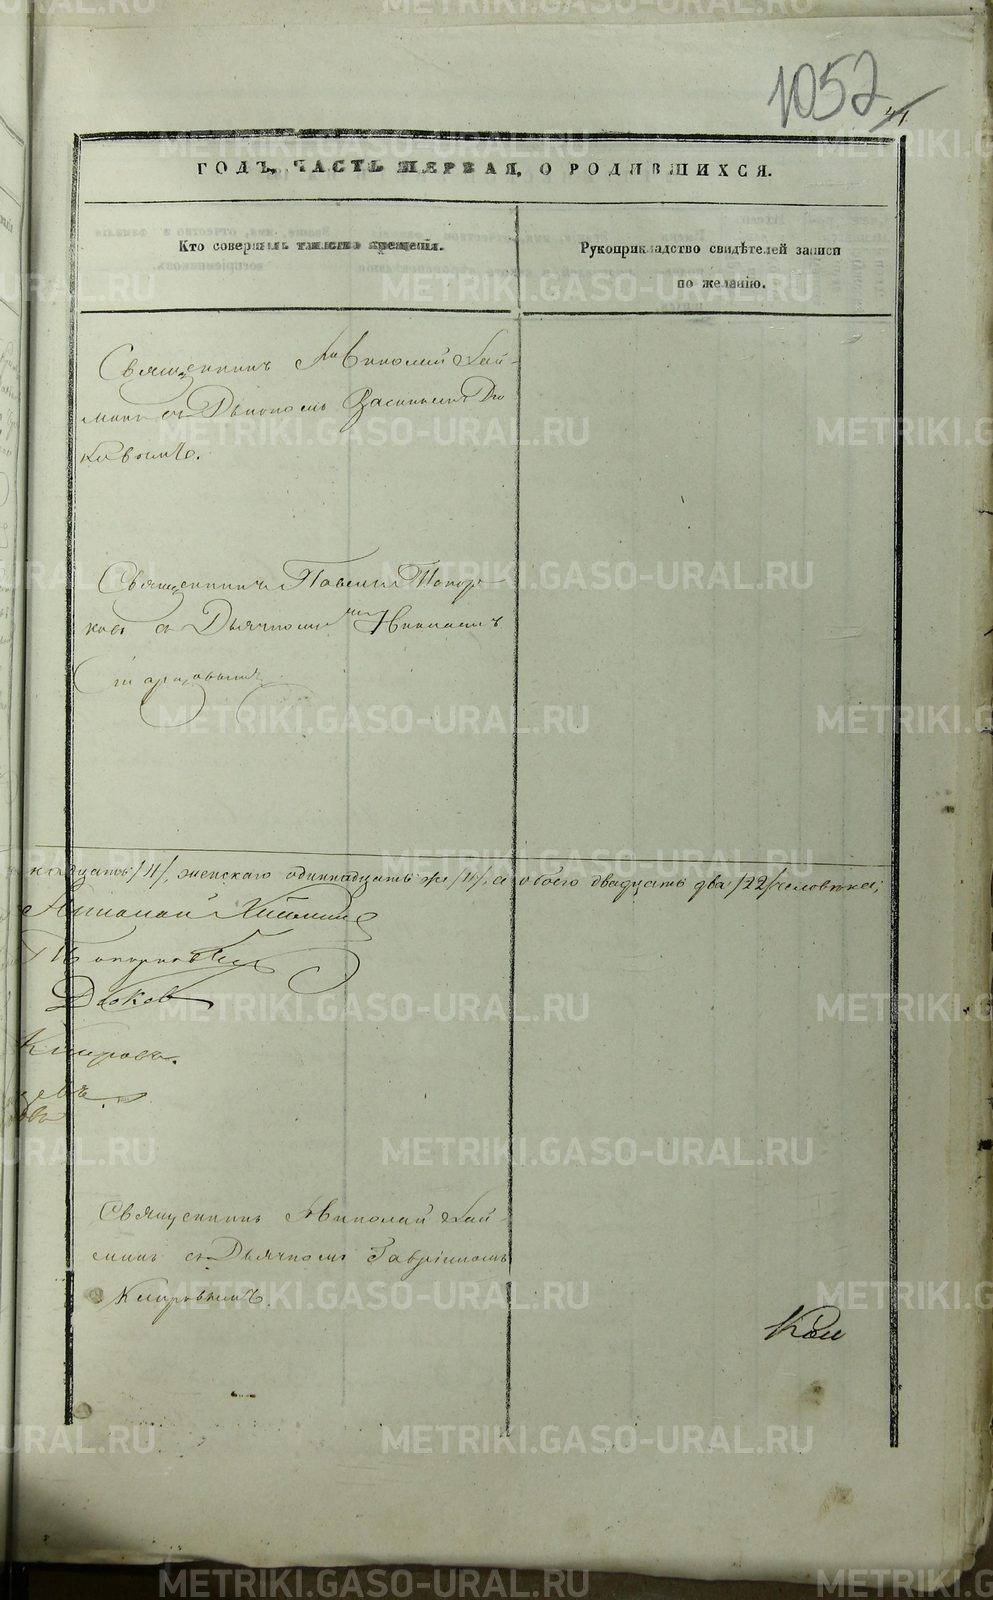 1052
41
ГОДЪ, ЧАСТЬ ПЕРВАЯ, О РОДИВШИХСЯ.
Кто совершалъ таинство крещенія.
Рукоприкладство свидѣтелей записи
по желанію.
Священникъ Николай Хай-
минъ съ Дьякономъ Василіемъ Дю
ковымъ.
Священникъ Павелъ Топор-
ковъ съ Дьячкомъ Николаемъ
кадцать /11/, женскаго одиннадцать же /11/, а обоего двадцать два /22/ человека;
Николай Хайминъ
Топорковъ
Дюковъ
Киировъ.
Священникъ Николай Хай-
минъ съ Дьячкомъ Гавріиломъ
METRIKI.GASO-URAL.RU